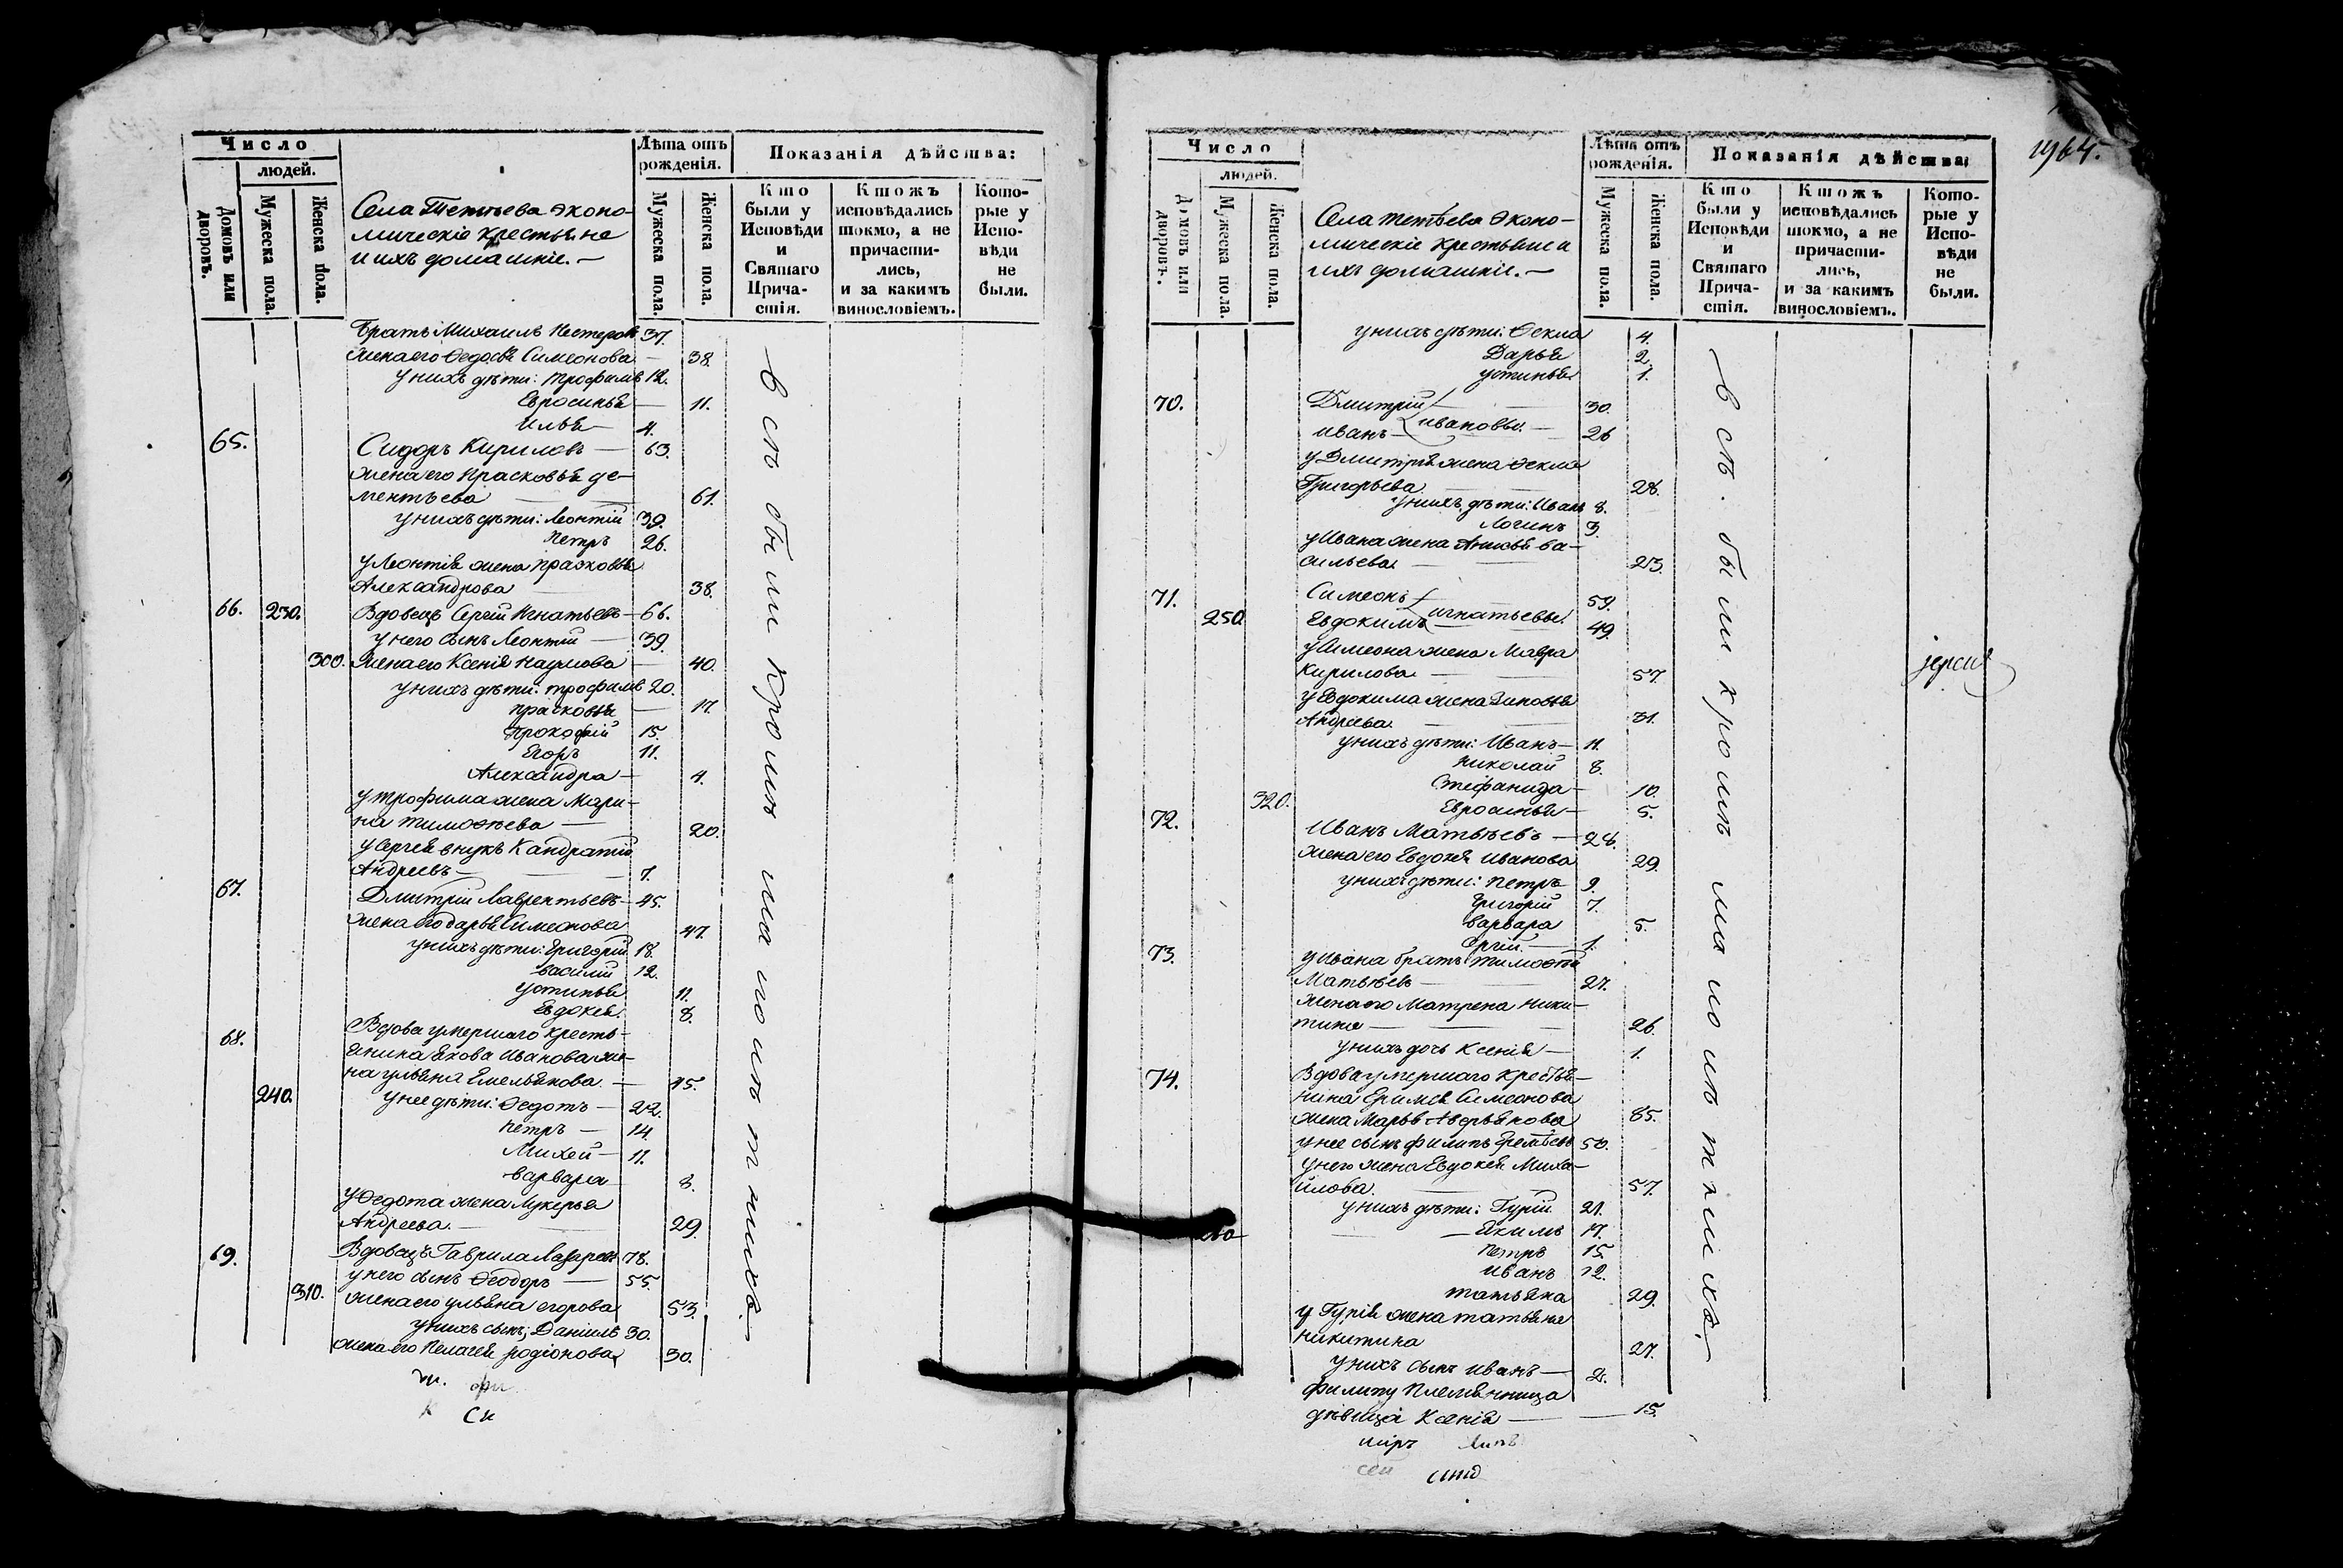 Число
людей.
Домовъ или дворовъ.
Мужеска пола.
Женска пола.
Села Тетѣева эконо-
мическіе крестьяне
и ихъ домашніе. —
Лѣта отъ рожденія.
Мужеска пола.
Женска пола.
Показанія дѣйства:
Кто были у Исповѣди и Святаго Прича- стія.
Ктожъ исповѣдались токмо, а не причасти- лись, и за какимъ винословіемъ.
Кото- рые у Испо- вѣди не были.
Братъ Михаилъ Нестеровъ 37.
жена его Федосья Симеонова — 38.
у нихъ дѣти: Трофимъ 12.
Евросинья — 11.
Илья — 4.
65. Сидоръ Кириловъ — 63.
жена его Прасковья Де-
ментьева — 61.
у нихъ дѣти: Леонтій 39.
Петръ 26.
у Леонтія жена Прасковья
Александрова 38.
66. 230. Вдовецъ Сергій Игнатьевъ — 66.
у него сынъ Леонтій — 39
300. жена его Ксенія Наумова — 40.
у нихъ дѣти: Трофимъ 20.
Прасковья — 17.
Прокофій 15.
Егоръ 11.
Александра — 4.
у Трофима жена Мари-
на Тимофѣева — 20.
у Сергея внукъ Кандратій
Андреевъ — 7.
67. Дмитрій Лаврентьевъ — 45.
жена его Дарья Симеонова 47.
у нихъ дѣти: Григорій 18.
Василій 12.
Устинья 11.
Евдокея. 8.
68. Вдова умершаго кресть-
янина Якова Иванова же-
на Ульяна Емельянова. — 45.
240. у нее дѣти: Федотъ — 22.
Петръ — 14.
Михей — 11.
Варвара 8.
у Федота жена Лукерья
Андреева. — 29.
69. Вдовецъ Гаврила Лазаревъ 78.
у него сынъ Феодоръ — 55.
310. жена его Ульяна Егорова 53.
у нихъ сынъ; Даніилъ 30.
жена его Пелагея Родіонова 30.
всѣ были кромѣ малолѣтнихъ. —
1964.
Число
людей.
Домовъ или дворовъ.
Мужеска пола.
Женска пола.
Села Тетѣева эконо-
мическіе крестьяне и
ихъ домашніе. —
Лѣта отъ рожденія.
Мужеска пола.
Женска пола.
Показанія дѣйства:
Кто были у Исповѣди и Святаго Прича- стія.
Ктожъ исповѣдались токмо, а не причасти- лись, и за какимъ винословіемъ.
Кото- рые у Испо- вѣди не были.
у нихъ дѣти: Фекла 4.
Дарья 2.
Устинья 1.
70. Дмитрій — 30.
Ивановы. —
Иванъ — 26
у Дмитрія жена Фекла
Григорьева — 28.
у нихъ дѣти: Иванъ 8.
Логинъ 3.
у Ивана жена Анисья Ва-
сильева. — 23.
71. Симеонъ 59.
Игнатьевы.
250. Евдокимъ 49.
у Симеона жена Мавра
Кирилова — 57.
у Евдокима жена Зиновья
Андреева. — 31.
у нихъ дѣти: Иванъ — 11.
Николай 8.
Стефанида — 10.
320. Евросинья — 5.
72. Иванъ Матвѣевъ — 28.
жена его Евдокея Иванова 29.
у нихъ дѣти: Петръ 9.
Григорій 7.
Варвара 5.
Сергій. — 1.
73. у Ивана братъ Тимофѣй
Матвѣевъ — 27.
жена его Матрена Ники-
тина — 26.
у нихъ дочь Ксенія — 1.
74. Вдова умершаго крестья-
нина Еримея Симеонова
жена Марья Аверьянова 85.
у нее сынъ Филипъ Еремѣевъ 50.
у него жена Евдокея Миха-
йлова. — 57.
у нихъ дѣти: Гурій 21.
260 — Якимъ 17.
Петръ 15.
Иванъ 12.
Татьяна 29.
у Гурія жена Татьяна
Никитина 27.
у нихъ сынъ Иванъ — 2.
Филипу племянница
дѣвица Ксенія — 15.
всѣ были кромѣ малолѣтнихъ. —